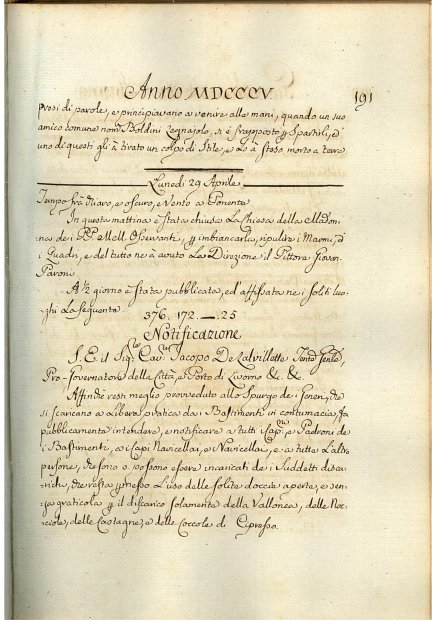 Anno MDCCCV
191
presi di parole, e principiavano a venire alle mani, quando un suo
amico comune nom.e Boldini Legnajolo, si è frapposto p spartirli, ed
uno di questi gli à tirato un colpo di Stile, e lo à steso morto a terra.
Lunedì 29 Aprile
Tempo frà chiaro, e oscuro, Vento a Ponente
In questa mattina è stata chiusa La Chiesa della Madon-
na de i PP. Osservanti, p imbiancarla, ripulire i Marmi, e
i Quadri, e del tutto ne à avuto La Direzione il Pittore Giovan
Paroni
A ½ giorno è stata pubblicata, ed affissata ne i soliti luo-
ghi La seguente
376. 172. — 25
Notificazione
S. E. il Sig. Cav. Jacopo De Lavillette Tente
Pro-Governatore della Città, e Porto di Livorno &. &.
Affinchè resti meglio provveduto allo Spurgo de i Generi, che
si scaricano a Libera pratica da i Bastimenti in contumacia, fa
pubblicamente intendere, e notificare a tutti i Cap.ni e Padroni de
i Bastimenti, a i Capi Navicellai, e Navicellai, e a tutte L'altre
persone, che sono o possono essere incaricati de i Suddetti disca-
richi, che resta permesso L'uso delle solite doccie aperte, e sen-
za graticola p il discarico solamente della Vallonea, delle Noc-
ciole, delle Castagne, e delle Coccole di Cipresso.